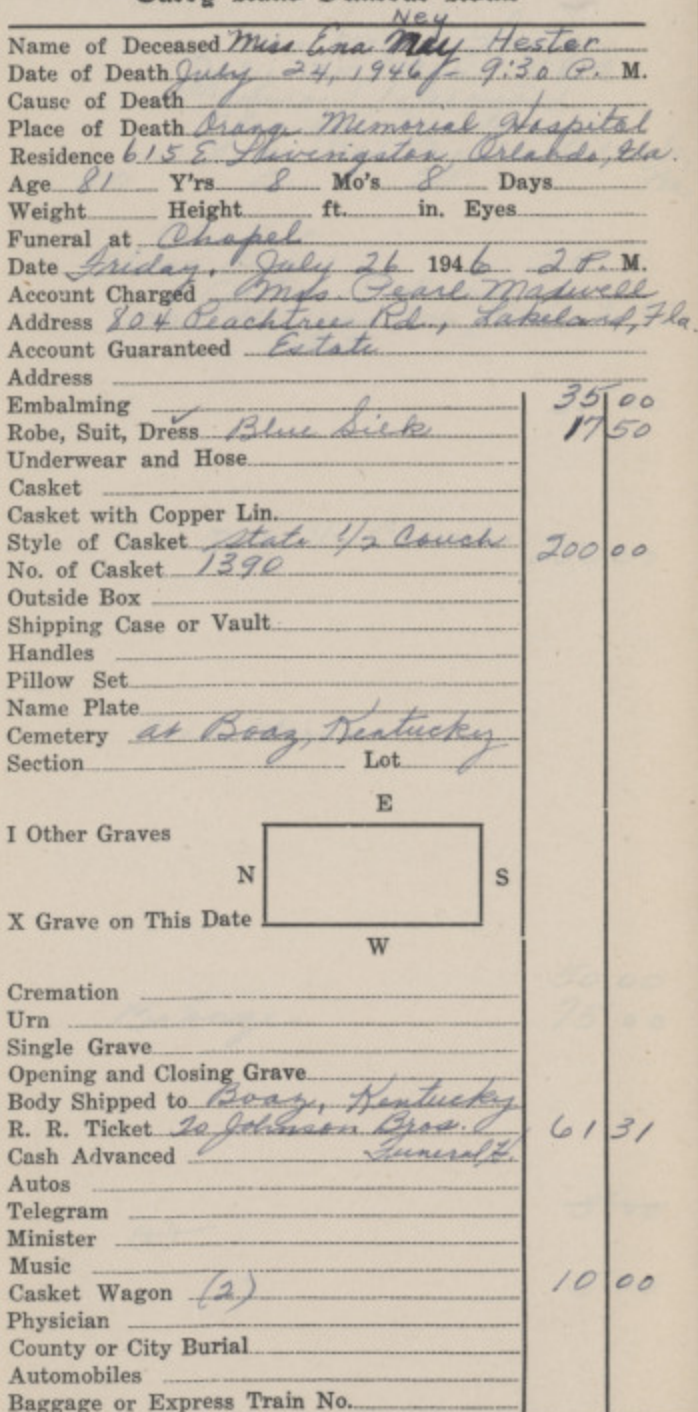 Ney
Name of Deceased Miss Ena May Hester
Date of Death July 24, 1946 - 9:30 P. M.
Cause of Death
Place of Death Orange Memorial Hospital
Residence 615 E Livingston, Orlando, Fla.
Age 81 Y'rs 8 Mo's 8 Days
Weight Height ft. in. Eyes
Funeral at Chapel
Date Friday, July 26 1946 2 P. M.
Account Charged Mrs Pearl Maxwell
Address 804 Peachtree Rd., Lakeland, Fla.
Account Guaranteed Estate
Address
Embalming 35 00
Robe, Suit, Dress Blue Silk 17 50
Underwear and Hose
Casket
Casket with Copper Lin.
Style of Casket State 1/2 Couch 200 00
No. of Casket 1390
Outside Box
Shipping Case or Vault
Handles
Pillow Set
Name Plate
Cemetery at Boaz, Kentucky
Section Lot
E
I Other Graves
N S
X Grave on This Date
W
Cremation
Urn
Single Grave
Opening and Closing Grave
Body Shipped to Boaz, Kentucky
R. R. Ticket To Johnson Bros. 61 31
Cash Advanced Funeral H.
Autos
Telegram
Minister
Music
Casket Wagon (2) 10 00
Physician
County or City Burial
Automobiles
Baggage or Express Train No.